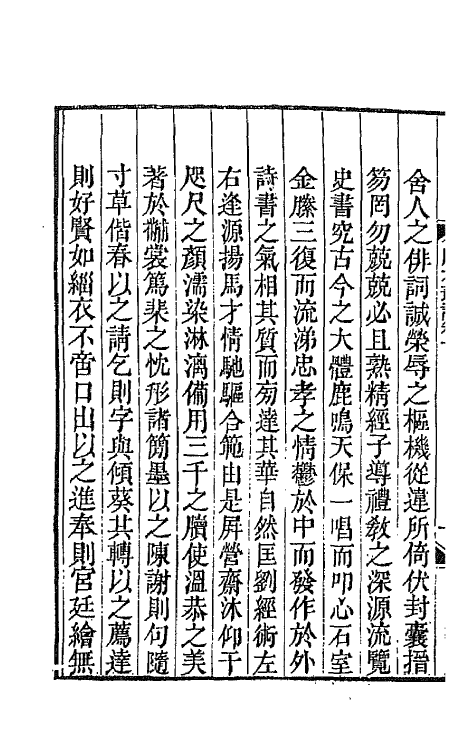 舍人之俳詞誠榮辱之樞機從違所倚伏封囊搢
笏罔勿兢兢必且熟精經子導禮敎之深源流覽
史書究古今之大體鹿鳴天保一唱而叩心石室
金縢三復而流涕忠孝之情鬱於中而發作於外
詩書之氣相其質而芴達其華自然匡劉經術左
右逢源揚馬才情馳驅合範由是屏營齋沐仰干
咫尺之顏濡染淋漓備用三千之牘使溫恭之美
著於黻裳篤棐之忱形諸簡墨以之陳謝則句隨
寸草偕春以之請乞則字與傾葵共轉以之薦達
則好賢如緇衣不啻口出以之進奉則宮廷繪無